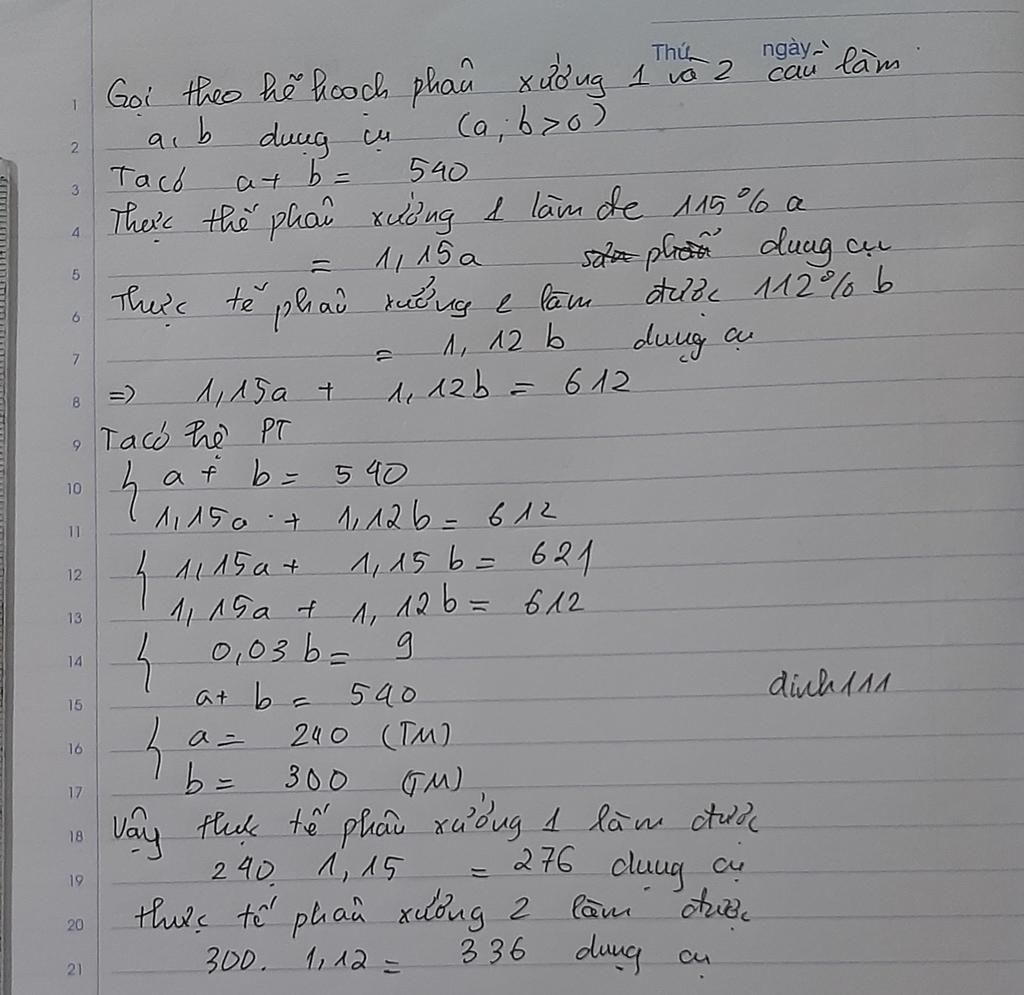 Thứ ngày
1 Gọi theo kế hoạch phân xưởng 1 và 2 cần làm
2 a, b dụng cụ (a; b > 0)
3 Ta có a + b = 540
4 Thực thế phân xưởng 1 làm đc 115% a
5 = 1,15a dụng cụ
6 Thực tế phân xưởng 2 làm được 112% b
7 = 1,12 b dụng cụ
8 => 1,15a + 1,12b = 612
9 Ta có hệ PT
10 { a + b = 540
11 1,15a + 1,12b = 612
12 { 1,15a + 1,15 b = 621
13 1,15a + 1,12b = 612
14 { 0,03 b = 9
15 a + b = 540 dinh111
16 { a = 240 (TM)
17 b = 300 (TM)
18 Vậy thực tế phân xưởng 1 làm được
19 240. 1,15 = 276 dụng cụ
20 thực tế phân xưởng 2 làm được
21 300. 1,12 = 336 dụng cụ